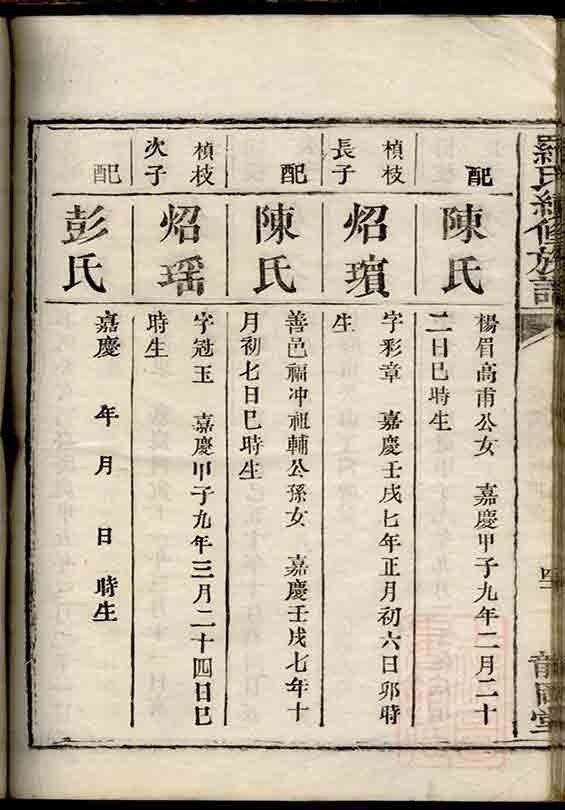 羅氏續修族譜
配
陳氏
楊眉高甫公女　嘉慶甲子九年二月二十
二日巳時生
楨枝
長子
炤璸
字彩章　嘉慶壬戌七年正月初六日卯時
生
配
陳氏
善邑福冲祖輔公孫女　嘉慶壬戌七年十
月初七日巳時生
楨枝
次子
炤瑶
字冠玉　嘉慶甲子九年三月二十四日巳
時生
配
彭氏
嘉慶　年　月　日　時生